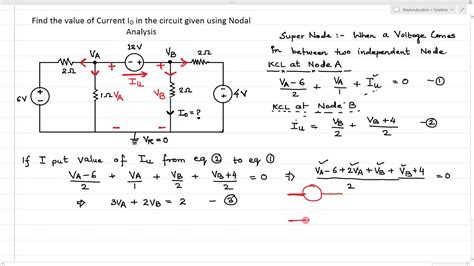 Find the value of Current I₀ in the circuit given using Nodal
Analysis
Super Node :- When a Voltage Comes
in between two independent Node
KCL at Node A
(V_A - 6)/2 + V_A/1 + I_u = 0 - ①
KCL at Node B
I_u = V_B/2 + (V_B + 4)/2 - ②
V_A 12V V_B
2Ω - + 2Ω
I_u
6V 1Ω V_A V_B 2Ω 4V
I₀ = ?
V_R = 0
If I put value of I_u from eq ② to eq ①
(V_A - 6)/2 + V_A/1 + V_B/2 + (V_B + 4)/2 = 0 ⇒ (V_A - 6 + 2V_A + V_B + V_B + 4)/2 = 0
⇒ 3V_A + 2V_B = 2 - ③